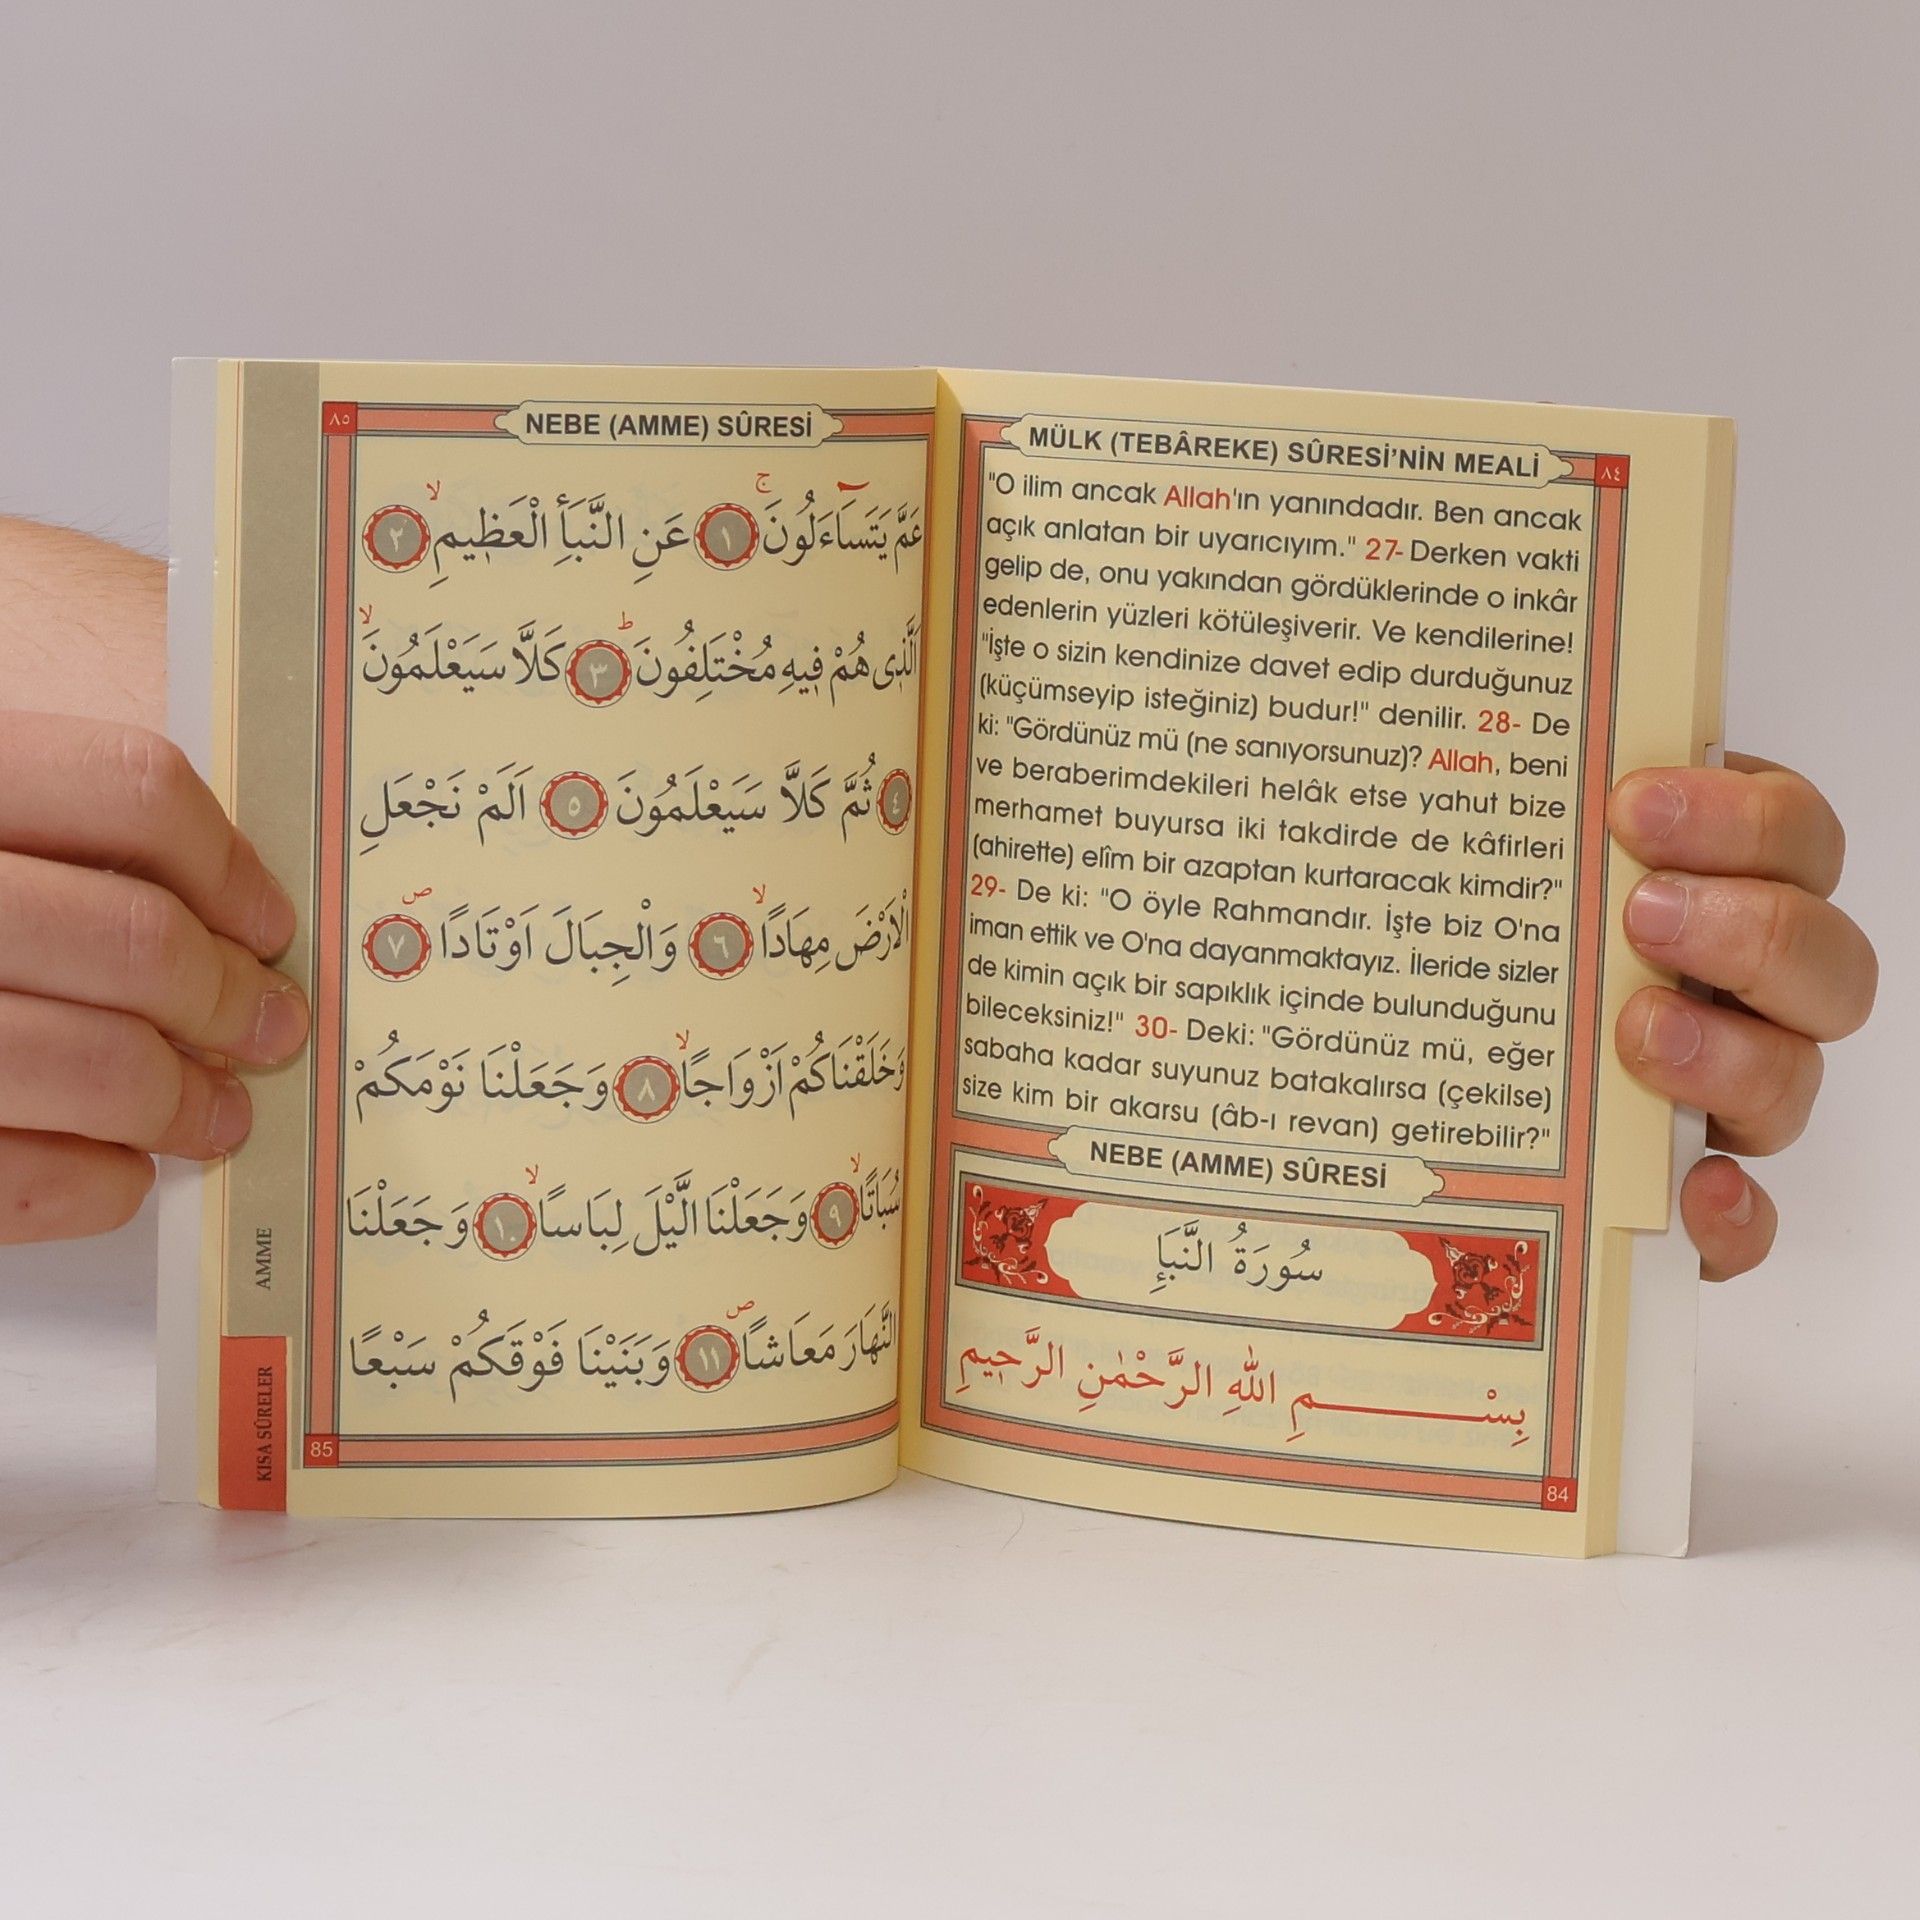 ٨٤
MÜLK (TEBÂREKE) SÛRESİ'NİN MEALİ
"O ilim ancak Allah'ın yanındadır. Ben ancak
açık anlatan bir uyarıcıyım." 27- Derken vakti
gelip de, onu yakından gördüklerinde o inkâr
edenlerin yüzleri kötüleşiverir. Ve kendilerine!
"İşte o sizin kendinize davet edip durduğunuz
(küçümseyip isteğiniz) budur!" denilir. 28- De
ki: "Gördünüz mü (ne sanıyorsunuz)? Allah, beni
ve beraberimdekileri helâk etse yahut bize
merhamet buyursa iki takdirde de kâfirleri
(ahirette) elîm bir azaptan kurtaracak kimdir?"
29- De ki: "O öyle Rahmandır. İşte biz O'na
iman ettik ve O'na dayanmaktayız. İleride sizler
de kimin açık bir sapıklık içinde bulunduğunu
bileceksiniz!" 30- Deki: "Gördünüz mü, eğer
sabaha kadar suyunuz batakalırsa (çekilse)
size kim bir akarsu (âb-ı revan) getirebilir?"
NEBE (AMME) SÛRESİ
سُورَةُ النَّبَإِ
بِسْــــــمِ اللّٰهِ الرَّحْمٰنِ الرَّحٖيمِ
84
٨٥
NEBE (AMME) SÛRESİ
عَمَّ يَتَسَآءَلُونَۚ ١ عَنِ النَّبَأِ الْعَظٖيمِۙ ٢
اَلَّذٖى هُمْ فٖيهِ مُخْتَلِفُونَۜ ٣ كَلَّا سَيَعْلَمُونَۙ
٤ ثُمَّ كَلَّا سَيَعْلَمُونَ ٥ اَلَمْ نَجْعَلِ
الْاَرْضَ مِهَادًاۙ ٦ وَالْجِبَالَ اَوْتَادًاۖ ٧
وَخَلَقْنَاكُمْ اَزْوَاجًاۙ ٨ وَجَعَلْنَا نَوْمَكُمْ
سُبَاتًاۙ ٩ وَجَعَلْنَا الَّيْلَ لِبَاسًاۙ ١٠ وَجَعَلْنَا
النَّهَارَ مَعَاشًاۖ ١١ وَبَنَيْنَا فَوْقَكُمْ سَبْعًا
85
AMME
KISA SÛRELER